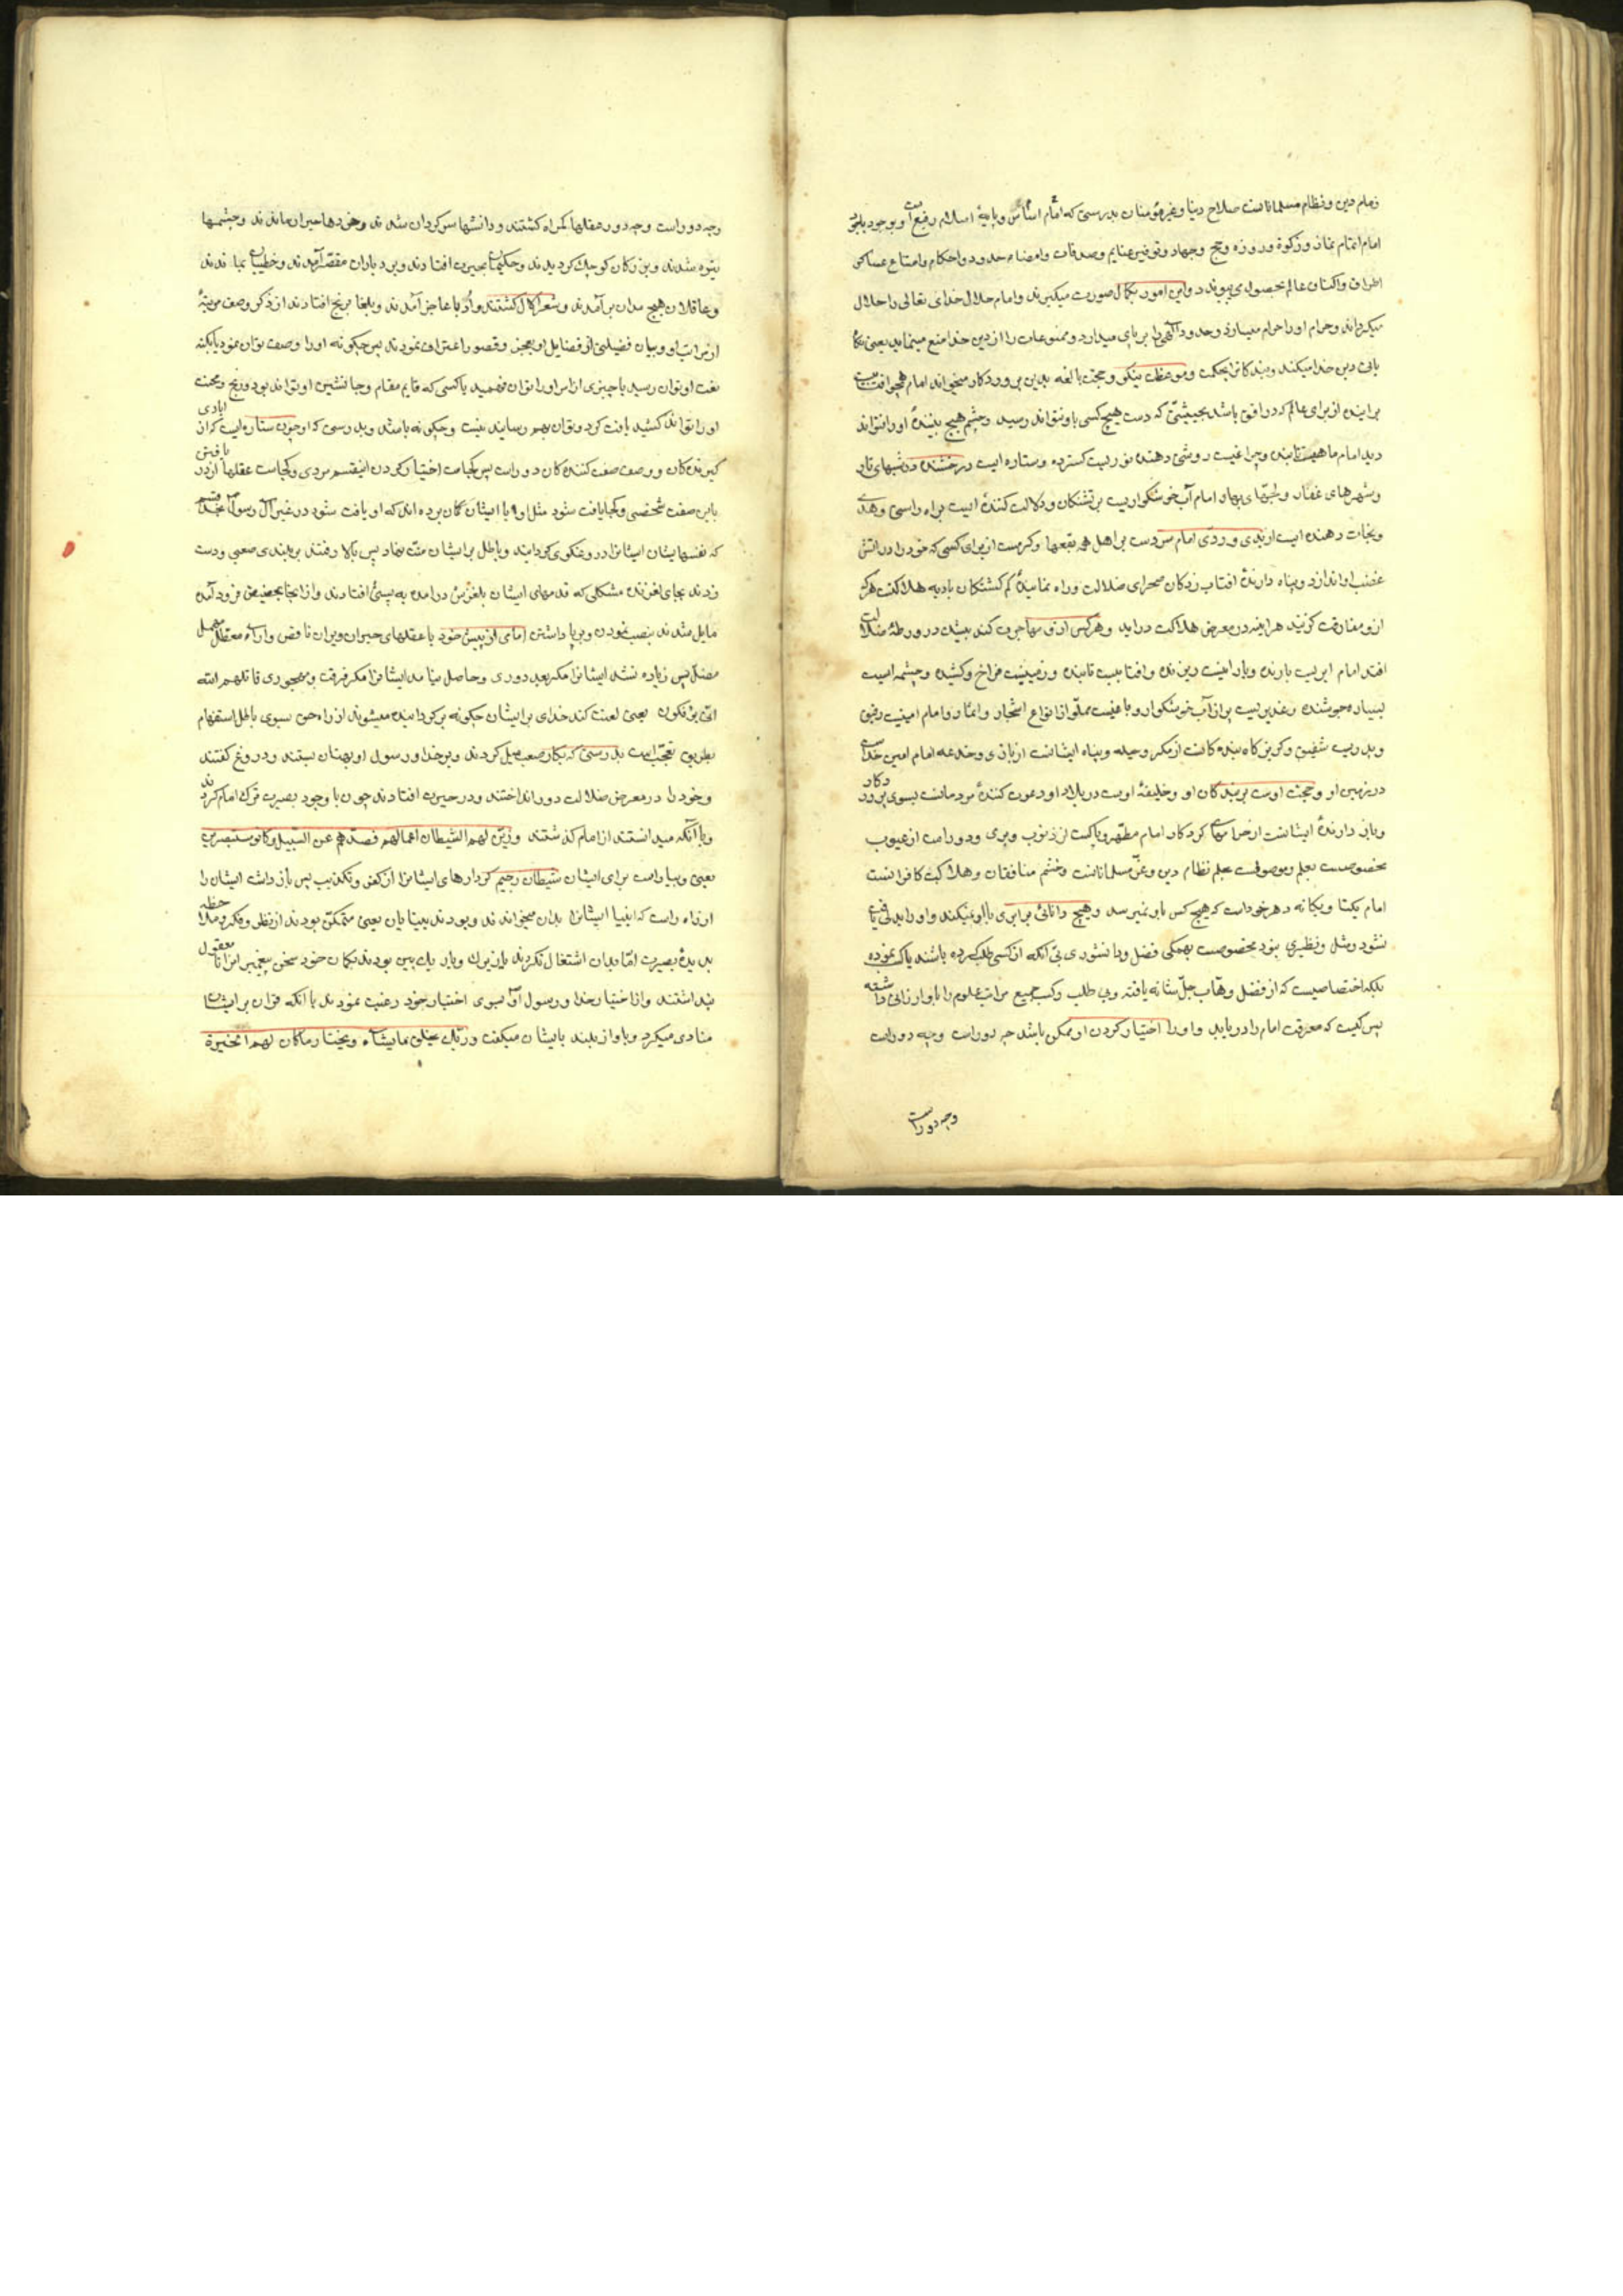 زمام دین و نظام مسلمانانست صلاح دنیا و عز مؤمنان بدرستی که امام اساس و پایهٔ اسلام رفیع است و بوجود
امام اتمام نماز و زکوة و روزه و حج و جهاد و توفیر غنایم و صدقات و امضاء حدود و احکام و امتناع عساکر
اطراف و اکناف عالم بحصول می پیوندد و این امور بکمال صورت میکیرند و امام حلال خدای تعالی را حلال
میکرداند و حرام او را حرام میسازد و حدود الهی را بر پای میدارد و ممنوعات را از دین خدا منع مینماید یعنی
یاری دین خدا میکند و بندکانرا بحکمت و موعظت نیکو و حجت بالغه بدین پروردکار میخواند امام همچو افتابیست
براینده از برای عالم که در افق باشد بحیثیتی که دست هیچ کسی باو نتواند رسید و چشم هیچ بینندهٔ او را نتواند
دید امام ماهیست تابنده و چراغیست روشنی دهنده نوریست کسترده و ستاره ایست درخشنده در شبهای تار
و شهرهای غفار و لجتهای بهار امام آب خوشکواریست بر تشنکان و دلالت کنندهٔ ایست براه راستی و هدی
و نجات دهنده ایست از بدی و ردی امام سردست بر اهل همه بقعها و کرمست از برای کسی که خود را در اتش
غضب او اندازد و پناه دارندهٔ افتاب زدکان صحرای ضلالت و راه نمایندهٔ کم کشتکان بادیه هلاکت هر که
ازو مفارقت کزیند هراینه در معرض هلاکت دراید و هر کس ازو مهاجرت کند بیشک در ورطهٔ ضلالت
افتد امام ابریست بارنده و بارانیست ریزنده و افتابیست تابنده و زمینیست فراخ و کشیده و چشمه ایست
بسیار جوشنده و غدیریست پر از آب خوشکوار و باغیست مملو از انواع اشجار و اثمار و امام امینیست رفیق
و پدریست شفیق و کریزکاه بنده کانست از مکر و حیله و پناه ایشانست از بازی و خدعه امام امین خداست
در زمین او و حجت اوست بر بندکان او و خلیفهٔ اوست در بلاد او دعوت کنندهٔ مردمانست بسوی پروردکار
و باز دارندهٔ ایشانست از حرامهای کردکار امام مطهر و پاکست از ذنوب و بری و دور است از عیوب
مخصوصست بعلم و موصوفست بحلم نظام دین و عز مسلمانانست و خشم منافقان و هلاکت کافرانست
امام یکتا و یکانه دهر خود است که هیچ کس باو نمیرسد و هیچ دانائی برابری با او نمیکند و او را بدلی یافت
نشود و مثل و نظیری نبود مخصوصست بهمکی فضل و دانشوری بی آنکه از کسی طلب کرده باشند یا کسب نموده
بلکه اختصاصیست که از فضل وهاب جل شانه یافته و بی طلب و کسب جمیع مراتب علوم را باو ارزانی داشته
پس کیست که معرفت امام را دریابد و او را اختیار کردن او ممکن باشد چه دور است و چه دور است
وچه دور است
وچه دور است و چه دور عقلها کمراه کشتند و دانشها سرکردان شدند و خردها حیران ماندند و چشمها
تیره شدند و بزرکان کوچک کردیدند و حکیمان بحیرت افتادند و بردباران مقصر آمدند و خطیبان بماندند
و عاقلان هیچ مدان برآمدند و شعرا کال کشتند و ادبا عاجز آمدند و بلغا برنج افتادند از ذکر وصف مرتبهٔ
از مراتب او و بیان فضیلتی از فضایل او بعجز و قصور اعتراف نمودند پس چکونه او را وصف توان نمود یا بکنه
نعت او توان رسید یا چیزی از امر او را توان فهمید یا کسی که قایم مقام و جانشین او تواند بود و رنج و محنت
او را تواند کشید یافت کرد و توان بهم رسانید نیست و چکونه باشد و بدرستی که او چون ستاره ایست که از ایادی
کیرنده کان و وصف صفت کننده کان دور است پس کجاست اختیار کردن اینقسم مردی و کجاست عقلها از دریافتن
باین صفت شخصی و کجا یافت شود مثل او ایا ایشان کمان برده اند که او یافت شود در غیر آل رسول بخدا قسم
که نفسهایشان ایشانرا دروغکوی کردانید و باطل بر ایشان منت نهاد پس بالا رفتند بر بلندی صعبی و دست
زدند بجای لغزنده مشکلی که قدمهای ایشان بلغزش درامده به پستی افتادند و از انجا بحضیض فرود آمده
مایل شدند بنصب نمودن و برپا داشتن امامی از پیش خود با عقلهای حیران ویران ناقص و آراء معطل مهمل
مضل پس زیاده نشد ایشانرا مکر بعد دوری و حاصل نیامد ایشانرا مکر فرقت و مهجوری قاتلهم الله
انی یؤفکون یعنی لعنت کند خدای بر ایشان چکونه برکردانیده میشوند از راه حق بسوی باطل استفهام
بطریق تعجب است بدرستی که بکار صعب میل کردند و بر خدا و رسول او بهتان بستند و دروغ کفتند
و خود را در معرض ضلالت دور انداختند و در حیرت افتادند چون با وجود بصیرت ترک امام کردند
و با آنکه میدانستند از امام کذشتند و زین لهم الشیطان اعمالهم فصدهم عن السبیل و کانوا مستبصرین
یعنی و بیاراست برای ایشان شیطان رجیم کردارهای ایشانرا از کفر و تکذیب پس باز داشت ایشان را
از راه راست که انبیا ایشانرا بدان میخواندند و بودند بینایان یعنی متمکن بودند از نظر و فکر و ملاحظه
بدیدهٔ بصیرت اما بدان اشتغال نکردند یا زیرک و باریک بین بودند بکمان خود سخن پیغمبر انرا نامعقول
پنداشتند و از اختیار خدا و رسول او بسوی اختیار خود رغبت نمودند با آنکه قران بر ایشان
منادی میکرد و باواز بلند بایشان میکفت و ربک یخلق ما یشاء و یختار ما کان لهم الخیرة